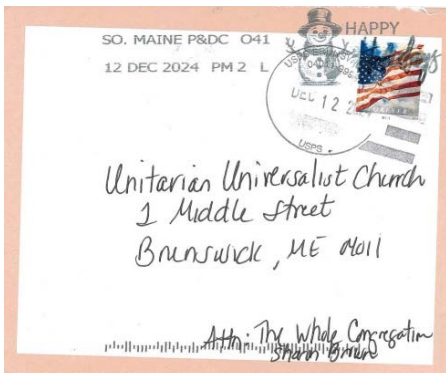 HAPPY
SO. MAINE P&DC 041
12 DEC 2024 PM 2 L
DEC 12
USPS
Unitarian Universalist Church
1 Middle Street
Brunswick, ME 04011
Attn: The Whole Congregation
Sharon